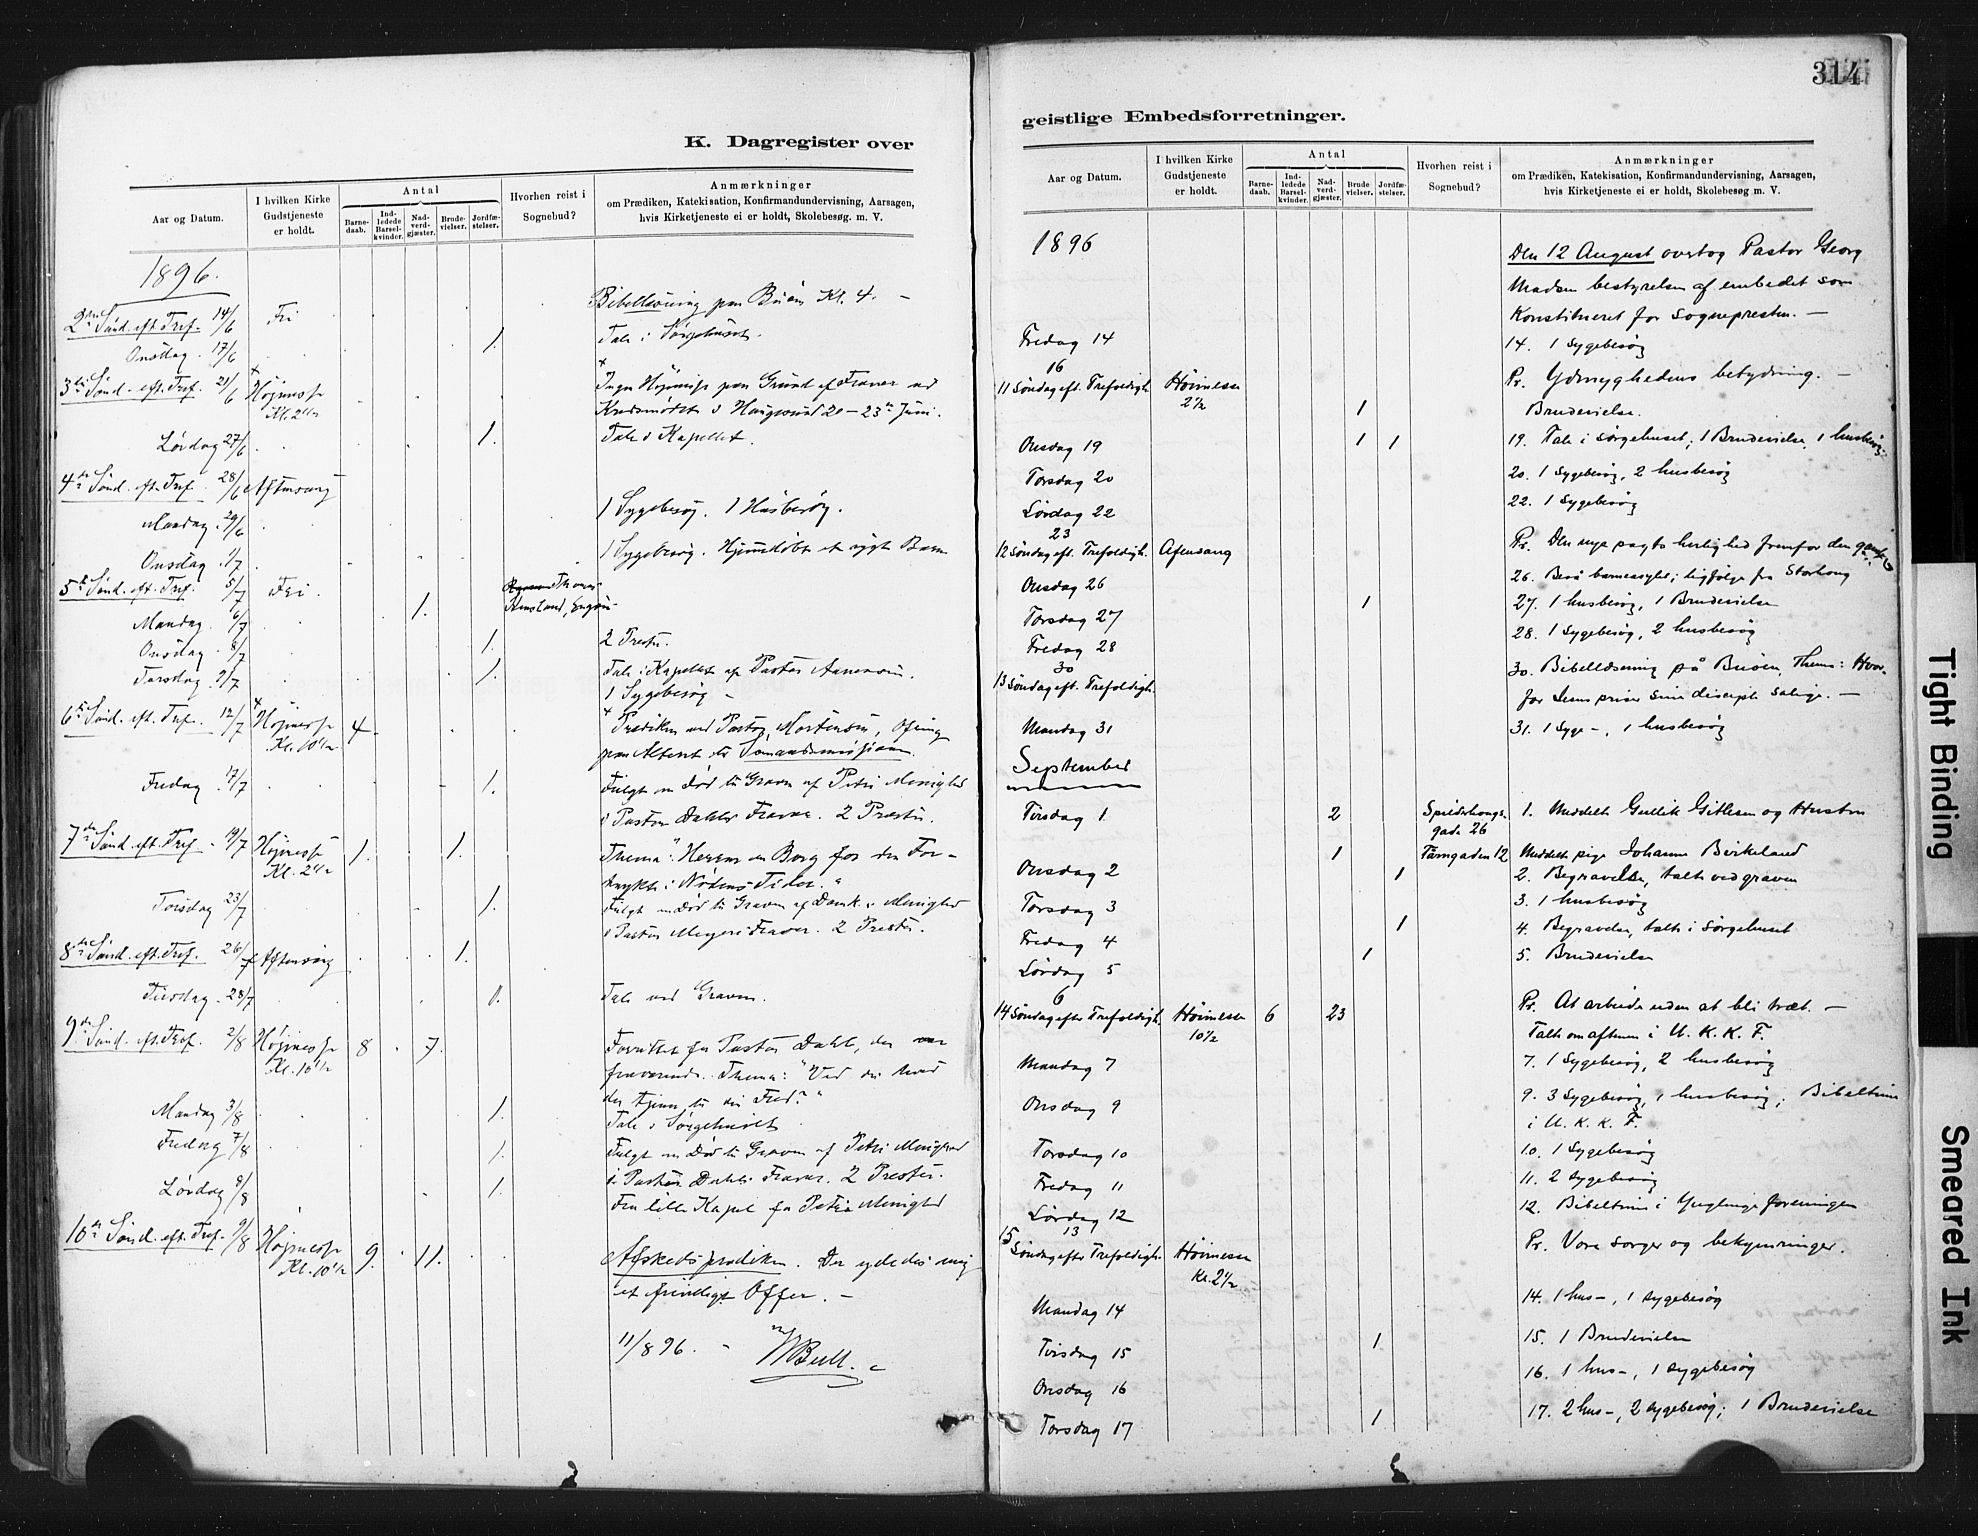 K. Dagregister over
Aar og Datum.
I hvilken Kirke
Gudstjeneste
er holdt.
Antal
Barne-
daab.
Ind-
ledede
Barsel-
kvinder.
Nad-
verd-
gjæster.
Brude-
vielser.
Jordfæ-
stelser.
Hvorhen reist i
Sognebud?
Anmærkninger
om Prædiken, Katekisation, Konfirmandundervisning, Aarsagen,
hvis Kirketjeneste ei er holdt, Skolebesøg. m. V.
1896.
Bibellæsning paa Buøen Kl. 4. -
2den Sönd. eft. Tref. 14/6 Fri
Onsdag. 17/6 1. Tale i Sørgehuset.
3die Sönd. eft. Tref. 21/6 Højmesse Ingen Højmesse paa Grund af Fravær ved
Kl. 2 1/2 Kredsmødet i Haugesund 20-23de Juni.
Lördag 27/6 1. Tale i Kapellet.
4de Sönd. eft. Tref. 28/6 Aftensang
Mandag. 29/6 1 Sygebesög. 1 Husbesög.
Onsdag. 1/7 1 Sygebesög. Hjemmedöbt et sygt Barn
5te Sönd. eft. Tref. 5/7 Fri.
Mandag. 6/7 1.
Onsdag. 8/7 1. 2 Prester.
Torsdag. 9/7 1. Tale i Kapellet af Pastor
1 Sygebesög -
6te Sönd. eft. Tref. 12/7 Højmesse 4 Prædiken ved Pastor Mortensen, Ofring
Kl. 10 1/2 paa Alteret for Sömandsmissionen.
Fredag. 17/7 1. Fulgt en Död til Graven af Petri Menighed
i Pastor Dahls Fravær. 2 Prester.
7de Sönd. eft. Tref. 19/7 Højmesse 1. 1. Thema: "Herren en Borg for den For-
Kl. 2 1/2 trykte i Nödens Tider."
Torsdag 23/7 1. Fulgt en Död til Graven af Domk. Menighed
i Pastor Meyers Fravær. 2 Prester.
8de Sönd. eft. Tref. 26/7 Aftensang 1.
Tirsdag. 28/7 1. Tale ved Graven.
9de Sönd. eft. Tref. 2/8 Højmesse 8 7. Forrettet for Pastor Dahl, der var
Kl. 10 1/2 fraværende. Thema: "Ved du hvad
der tjener til din Fred?"
Mandag 3/8 1. Tale i Sørgehuset
Fredag 7/8 1. Fulgt en Död til Graven af Petri Menighed
i Pastor Dahls Fravær. 2 Prester.
Lördag 8/8 1. Fra lille Kapel for Petri Menighed
10de Sönd. eft. Tref. 9/8 Højmesse 9. 11. Afskedsprædiken. Der ydedes mig
Kl. 10 1/2 et frivilligt Offer. -
11/8 96. - Bull.
314
geistlige Embedsforretninger.
Aar og Datum.
I hvilken Kirke
Gudstjeneste
er holdt.
Antal
Barne-
daab.
Ind-
ledede
Barsel-
kvinder.
Nad-
verd-
gjæster.
Brude-
vielser.
Jordfæ-
stelser.
Hvorhen reist i
Sognebud?
Anmærkninger
om Prædiken, Katekisation, Konfirmandundervisning, Aarsagen,
hvis Kirketjeneste ei er holdt, Skolebesøg m. V.
1896
Den 12 August overtog Pastor Georg
Madsen bestyrelsen af embedet som
Konstitueret for sognepresten. -
Fredag 14 14. 1 sygebesøg
16
11 Søndag eft. Trefoldigh. Høimesse Pr. Ydmyghedens betydning. -
2 1/2 1 Brudevielse.
Onsdag 19 1 1 19. Tale i sørgehuset, 1 Brudevielse, 1 husbesøg
Torsdag 20 20. 1 sygebesøg, 2 husbesøg
Lørdag 22 22. 1 sygebesøg
23
12 Søndag eft. Trefoldigh. Aftensang Pr. Den nye pagts herlighed fremfor den gamles
Onsdag 26 26. Besø barneasylet; ligfølge fra Storhoug
Torsdag 27 1 27. 1 husbesøg, 1 Brudevielse
Fredag 28 28. 1 sygebesøg, 2 husbesøg
30 30. Bibellæsning på Buøen, Thema: Hvor-
13 Søndag eft. Trefoldigh. for Jesus priser sine disciple salige. -
Mandag 31 31. 1 syge-, 1 husbesøg
September
Tirsdag 1 2 Spilderhougs- 1. Meddelt Gullik Gitlesen og Hustru
gade 26
1 Tårngaden 12 Meddelt pige Johanne Birkeland
Onsdag 2 1 2. Begravelse, talte ved graven
Torsdag 3 3. 1 husbesøg
Fredag 4 1 4. Begravelse, talte i sørgehuset
Lørdag 5 1 5. Brudevielse
6
14 Søndag efter Trefoldigh. Høimesse 6 23 Pr. At arbeide uden at bli træt. -
10 1/2 Talte om aftenen i U. K. K. F.
Mandag 7 7. 1 sygebesøg, 2 husbesøg
Onsdag 9 9. 3 sygebesøg, 1 husbesøg; Bibeltime
i U. K. K. F.
Torsdag 10 10. 1 sygebesøg
Fredag 11 11. 2 sygebesøg
Lørdag 12 12. Bibeltime i Ynglingeforeningen
13
15 Søndag efter Trefoldigh. Høimesse Pr. Vore sorger og bekymringer.
Kl. 2 1/2
Mandag 14 14. 1 hus-, 1 sygebesøg
Tirsdag 15 1 15. 1 Brudevielse
Onsdag 16 16. 1 hus-, 1 sygebesøg
Torsdag 17 1 17. 2 hus-, 2 sygebesøg; 1 Brudevielse
Tight Binding
Smeared Ink